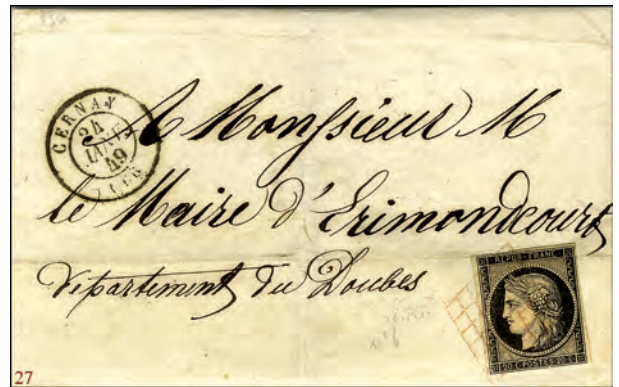 CERNAY
24
JANV.
49
(66)
A Monsieur M
le Maire d'Erimondcourt
département du Doubes
REPUB. FRANC.
20 C POSTES 20 C
27